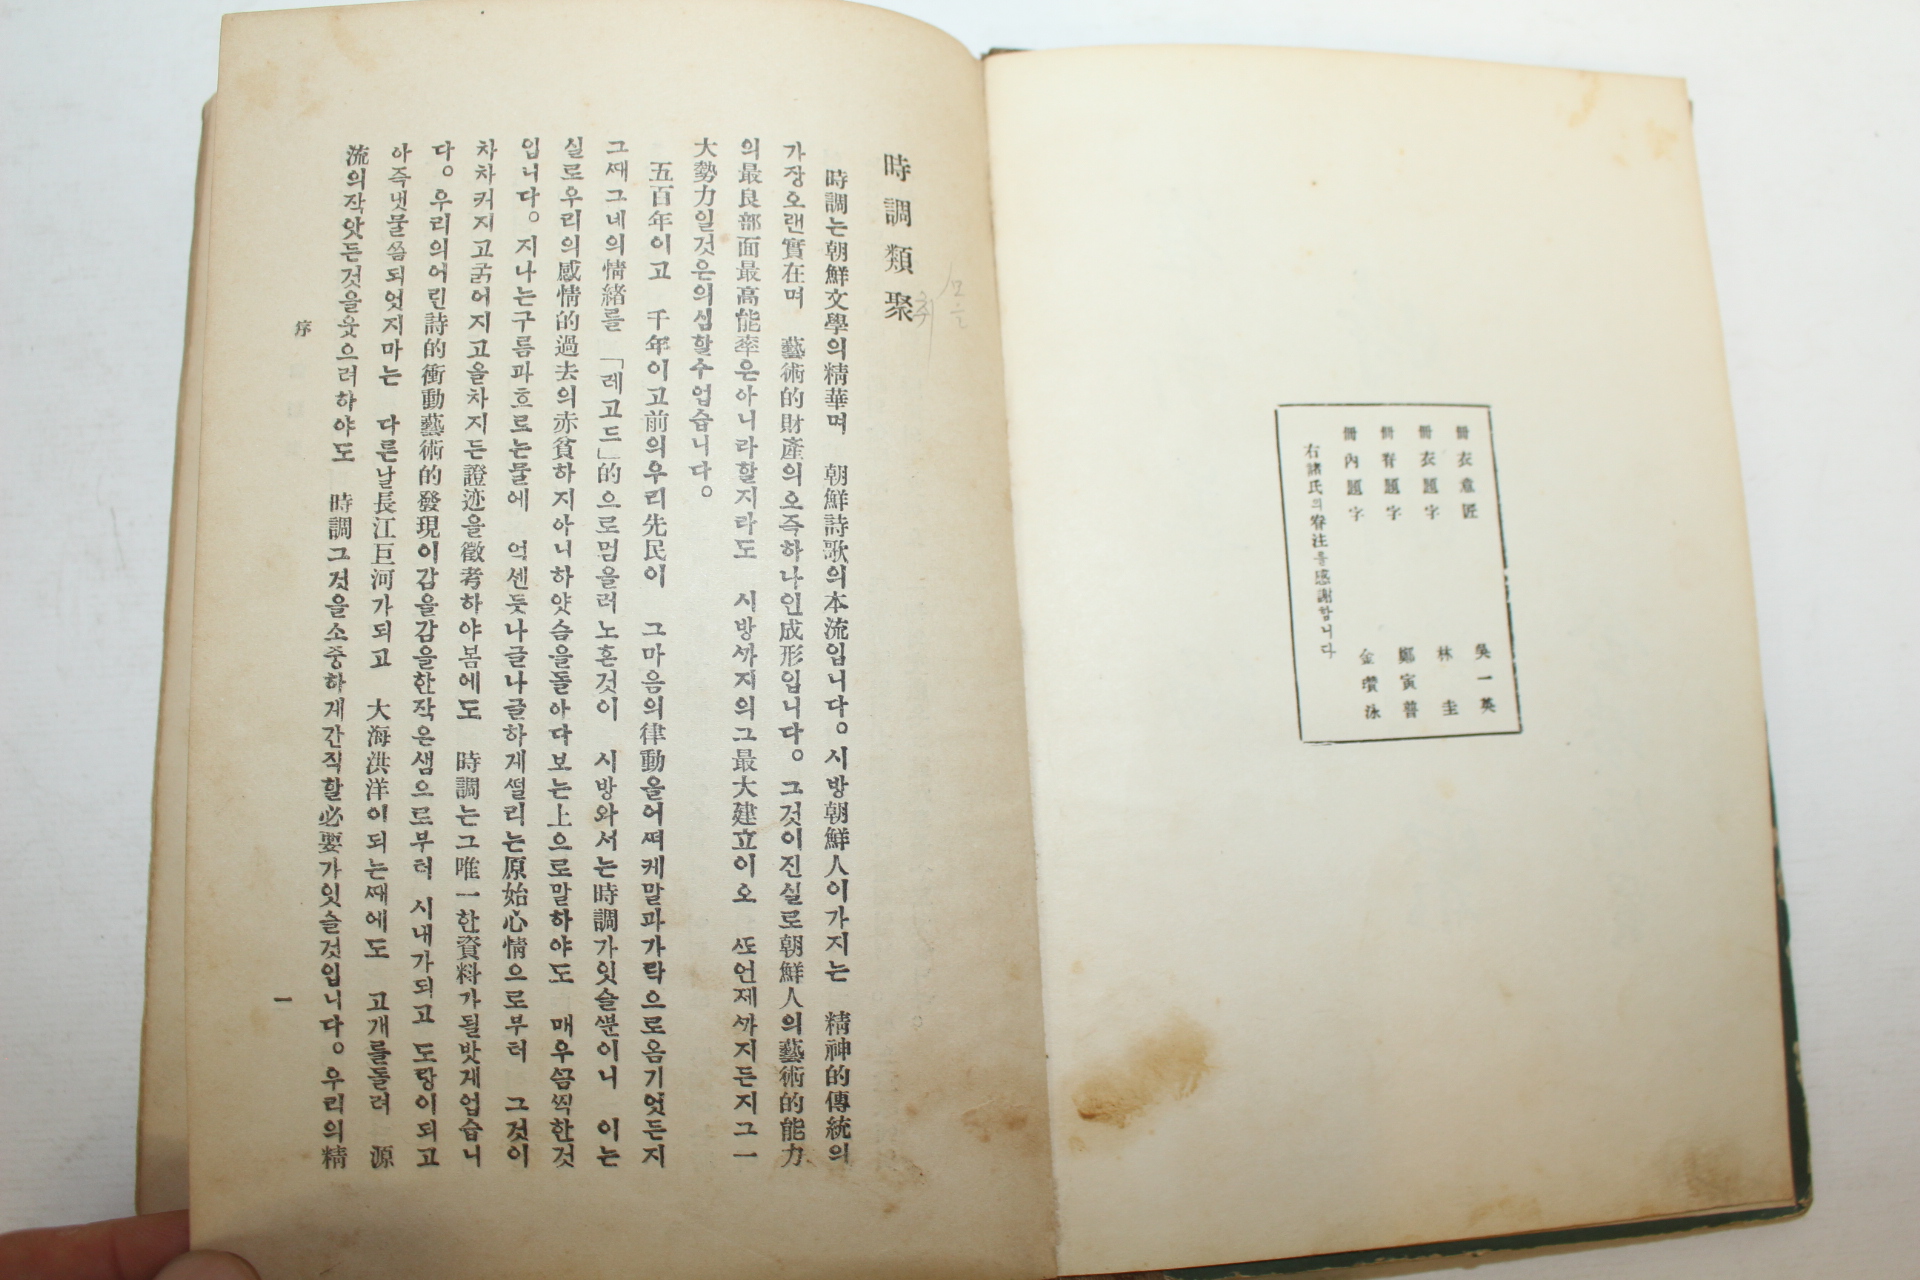 冊衣意匠 吳一英
冊衣題字 林圭
冊脊題字 鄭寅普
冊內題字 金瓚泳
右諸氏의眷注를感謝합니다
時調類聚
취
모을
時調는朝鮮文學의精華며 朝鮮詩歌의本流입니다。시방朝鮮人이가지는 精神的傳統의
가장오랜實在며 藝術的財產의오즉하나인成形입니다。그것이진실로朝鮮人의藝術的能力
의最良部面最高能率은아니라할지라도 시방ᄭᅡ지의그最大建立이오 ᄯᅩ언제ᄭᅡ지든지그一
大勢力일것은의심할수업습니다。
五百年이고 千年이고前의우리先民이 그마음의律動을어ᄯᅥ케말과가락으로옴기엇든지
그ᄯᅢ그네의情緖를 「레고드」的으로멈을러노흔것이 시방와서는時調가잇슬ᄲᅮᆫ이니 이는
실로우리의感情的過去의赤貧하지아니하얏슴을돌아다보는上으로말하야도 매우ᄭᅳᆷ찍한것
입니다。지나는구름과흐르는물에 억센듯나글나글하게ᄯᅥᆯ리는原始心情으로부터 그것이
차차커지고굵어지고올차지든證迹을徵考하야봄에도 時調는그唯一한資料가될밧게업습니
다。우리의어린詩的衝動藝術的發現이감을감을한작은샘으로부터 시내가되고 도랑이되고
아즉냇물ᄭᅩᆯ되엇지마는 다른날長江巨河가되고 大海洪洋이되는ᄯᅢ에도 고개를돌려 源
流의작앗든것을웃으려하야도 時調그것을소중하게간직할必要가잇슬것입니다。우리의精
序
一